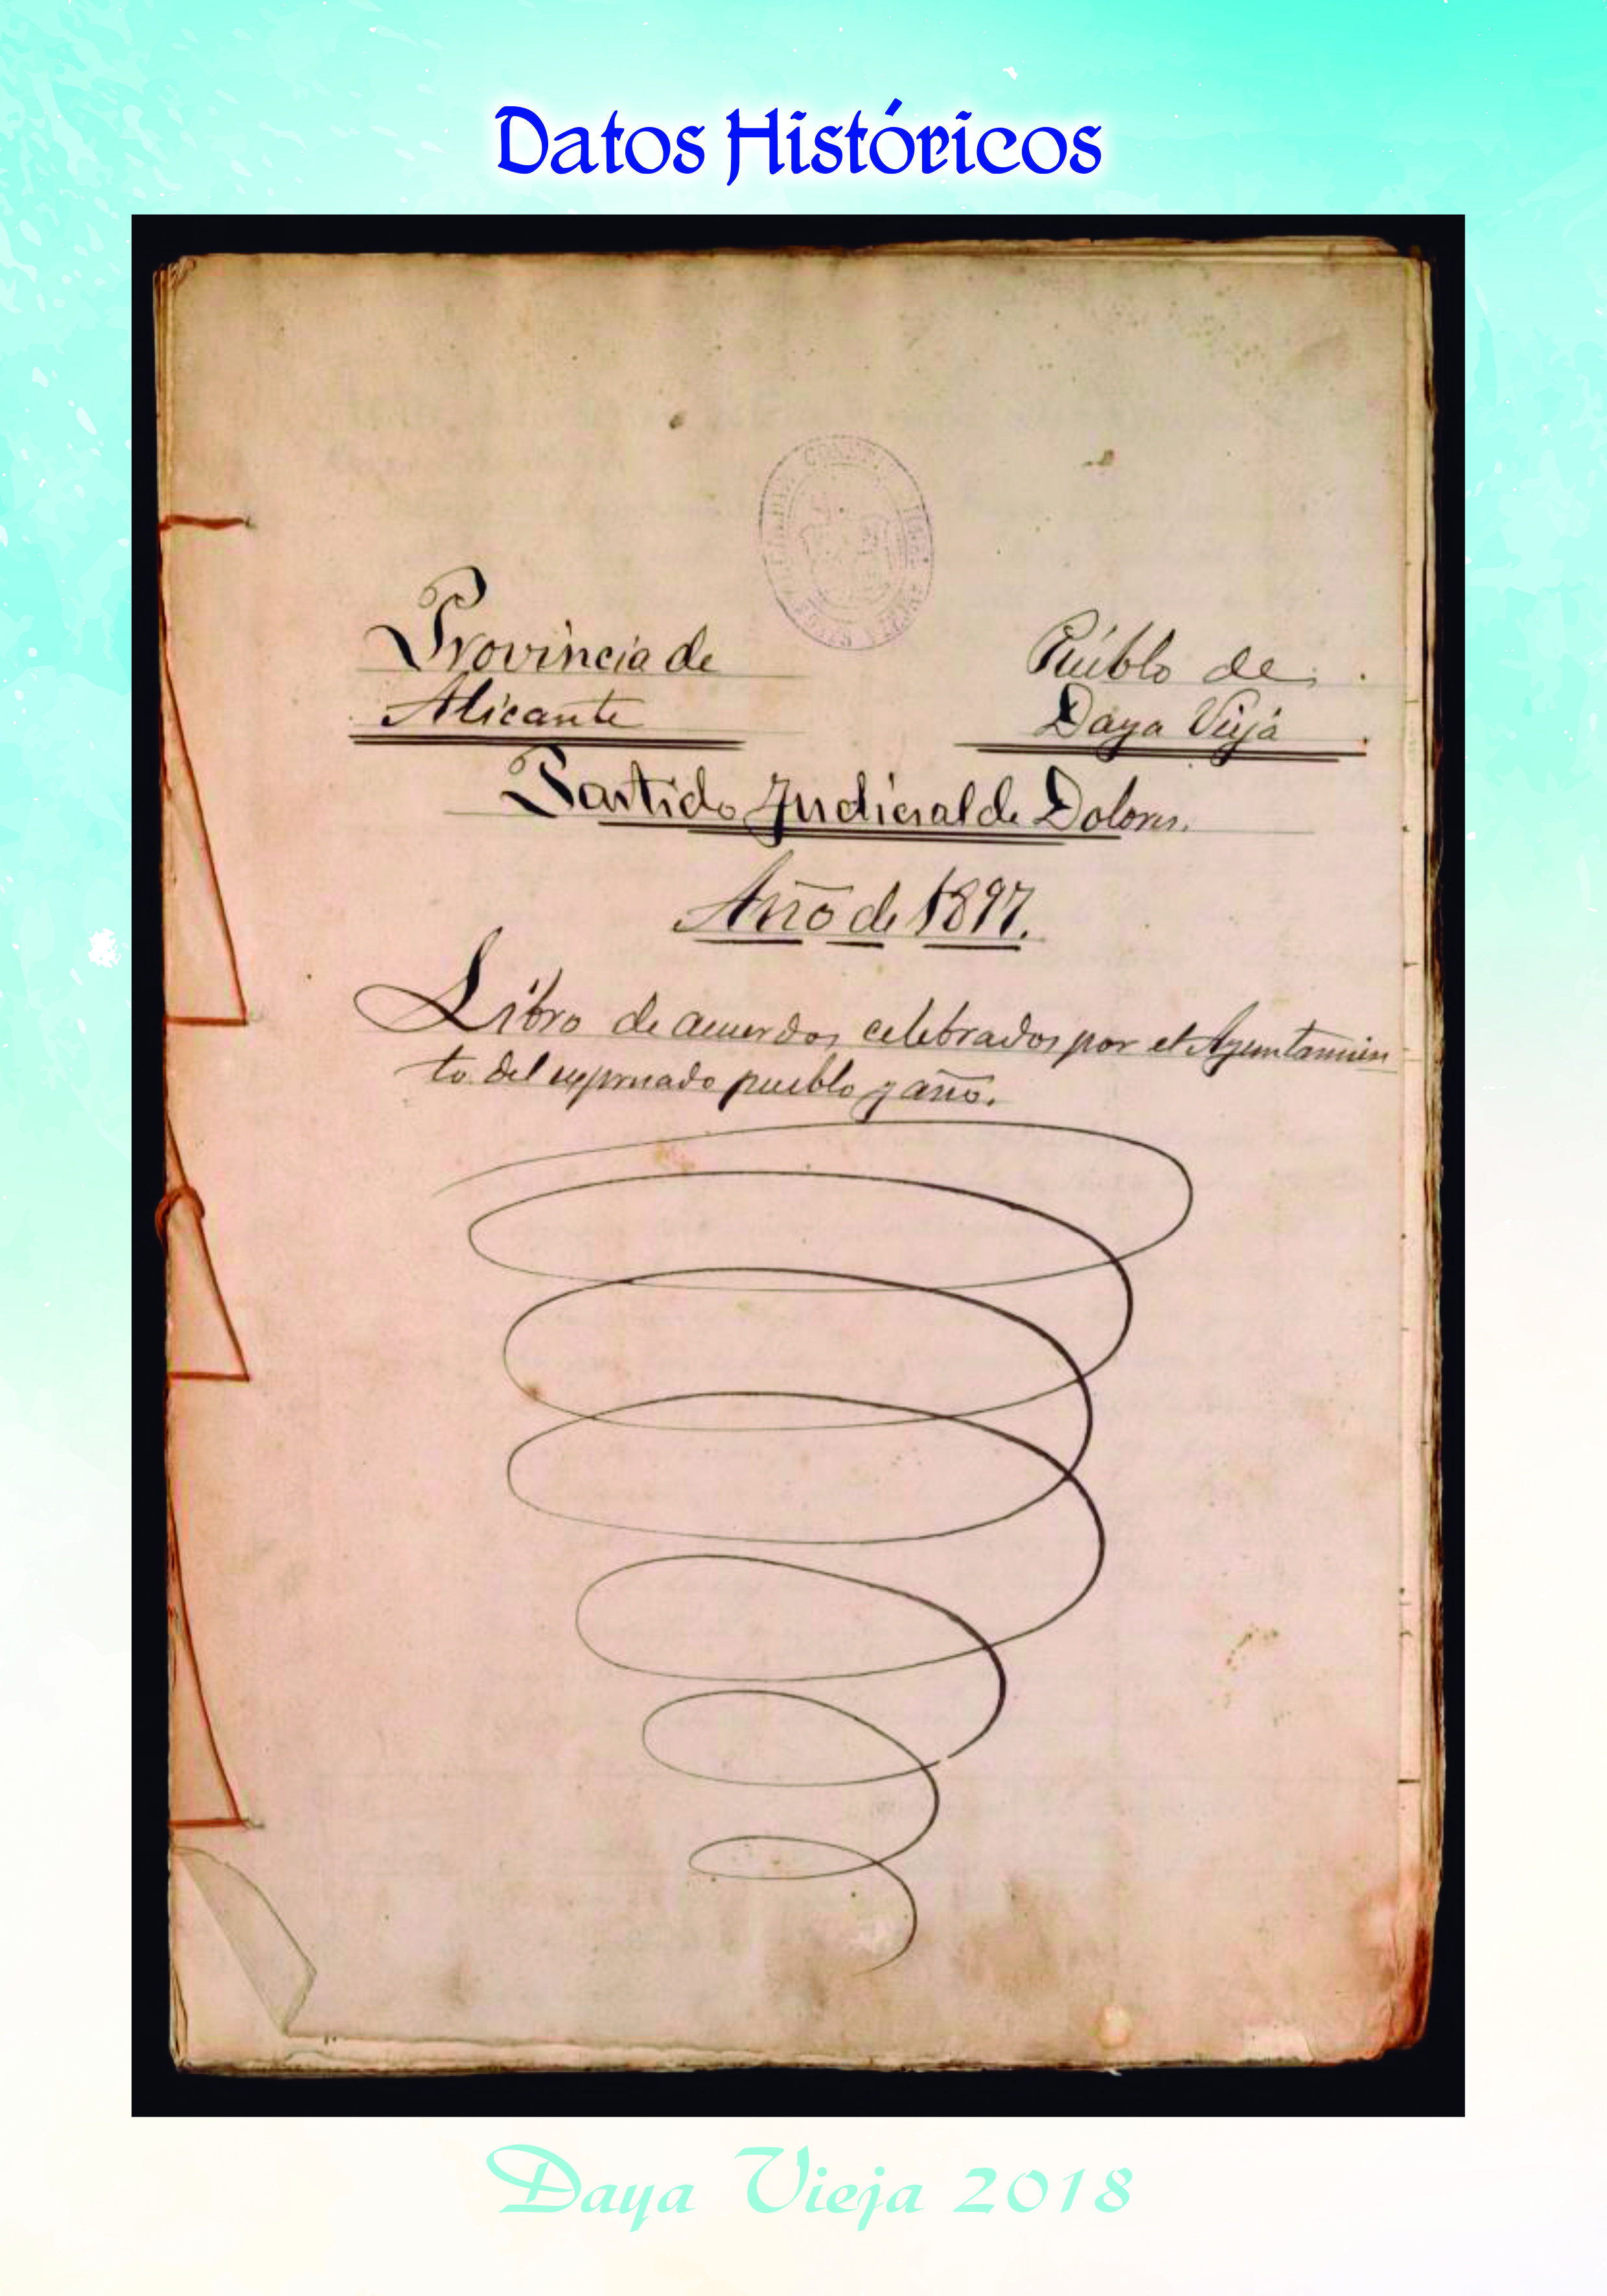 Datos Históricos
Provincia de
Alicante
Pueblo de
Daya Vieja
Partido Judicial de Dolores.
Año de 1897.
Libro de acuerdos celebrados por el Ayuntamien
to del expresado pueblo y año.
Daya Vieja 2018